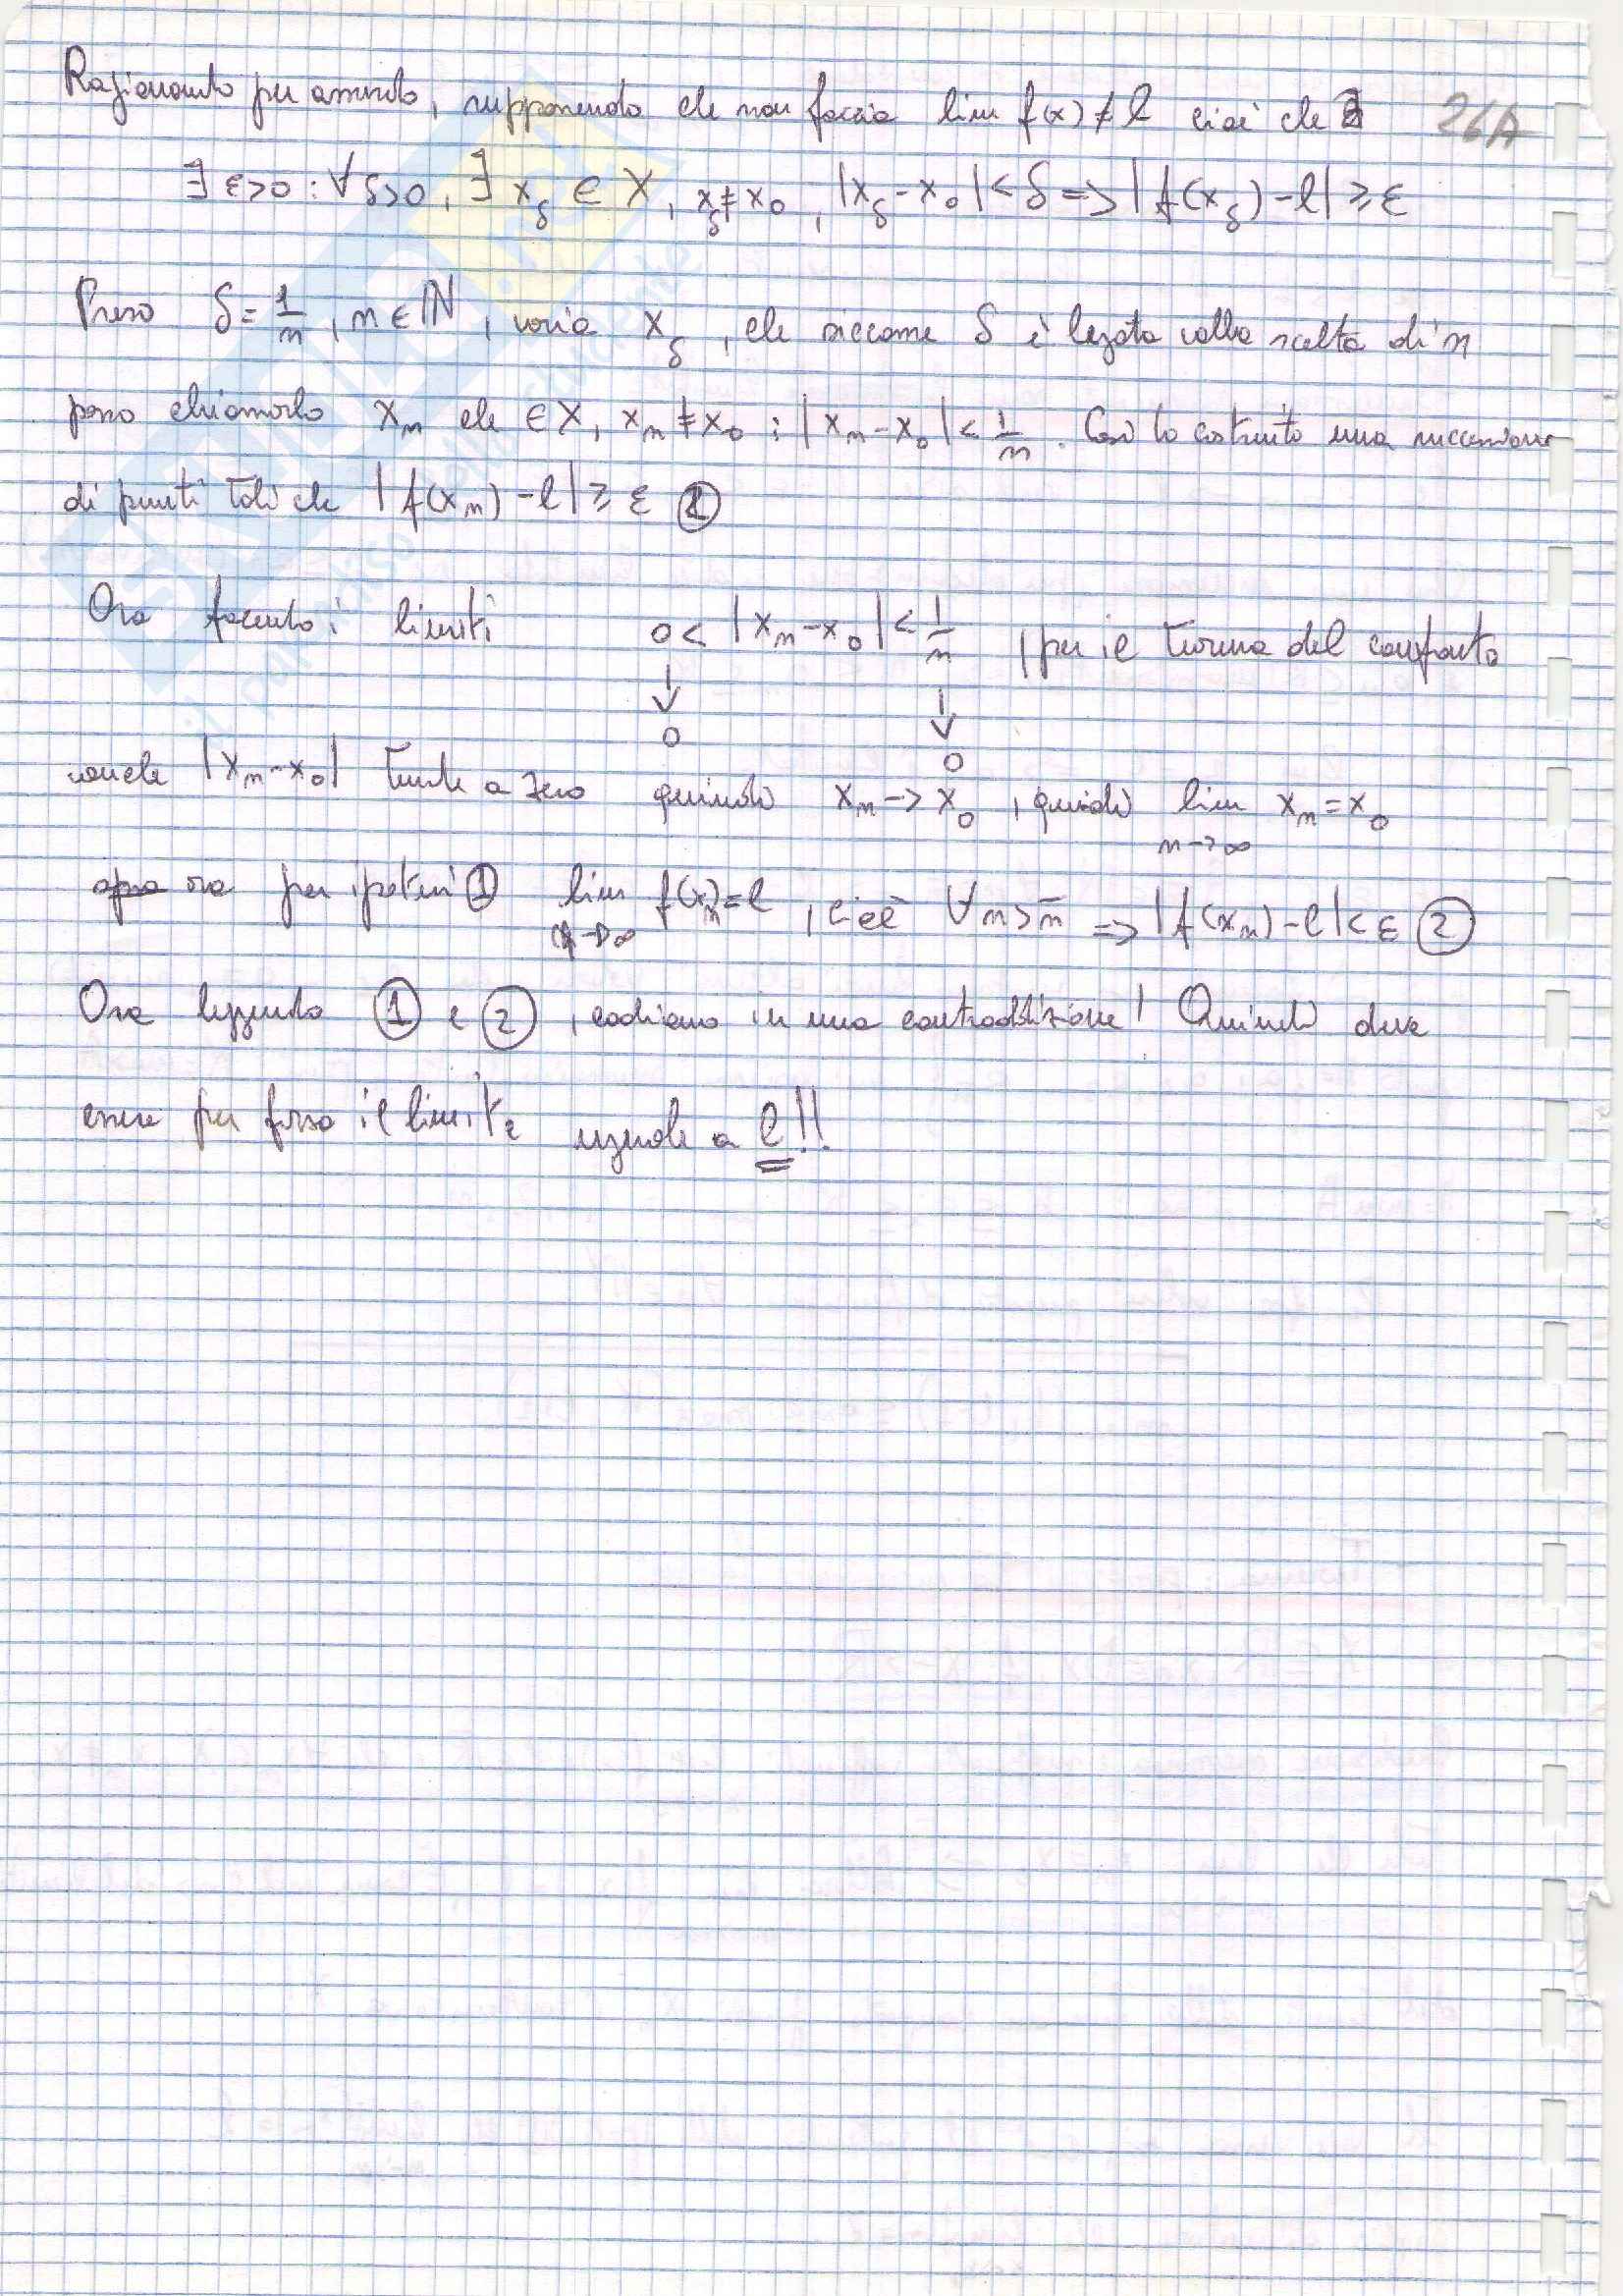 Ragionando per assurdo, supponendo che non faccia lim f(x) ≠ l cioè che 26A
∃ ε>0 : ∀ δ>0, ∃ x_δ ∈ X, x_δ ≠ x_0, |x_δ - x_0| < δ => |f(x_δ) - l| ≥ ε
Preso δ = 1/n, n ∈ ℕ, varia x_δ, che siccome δ è legata alla scelta di n
posso chiamarlo x_n che ∈ X, x_n ≠ x_0 : |x_n - x_0| < 1/n. Così ho costruito una successione
di punti tali che |f(x_n) - l| ≥ ε ①
Ora facendo i limiti 0 < |x_n - x_0| < 1/n, per il teorema del confronto
↓ ↓
0 0
anche |x_n - x_0| tende a zero quindi x_n -> x_0, quindi lim x_n = x_0
n -> ∞
ora per ipotesi ① lim f(x_n) = l, cioè ∀ n > n̅ => |f(x_n) - l| < ε ②
n -> ∞
Ora leggendo ① e ②, cadiamo in una contraddizione! Quindi deve
essere per forza il limite uguale a l!!